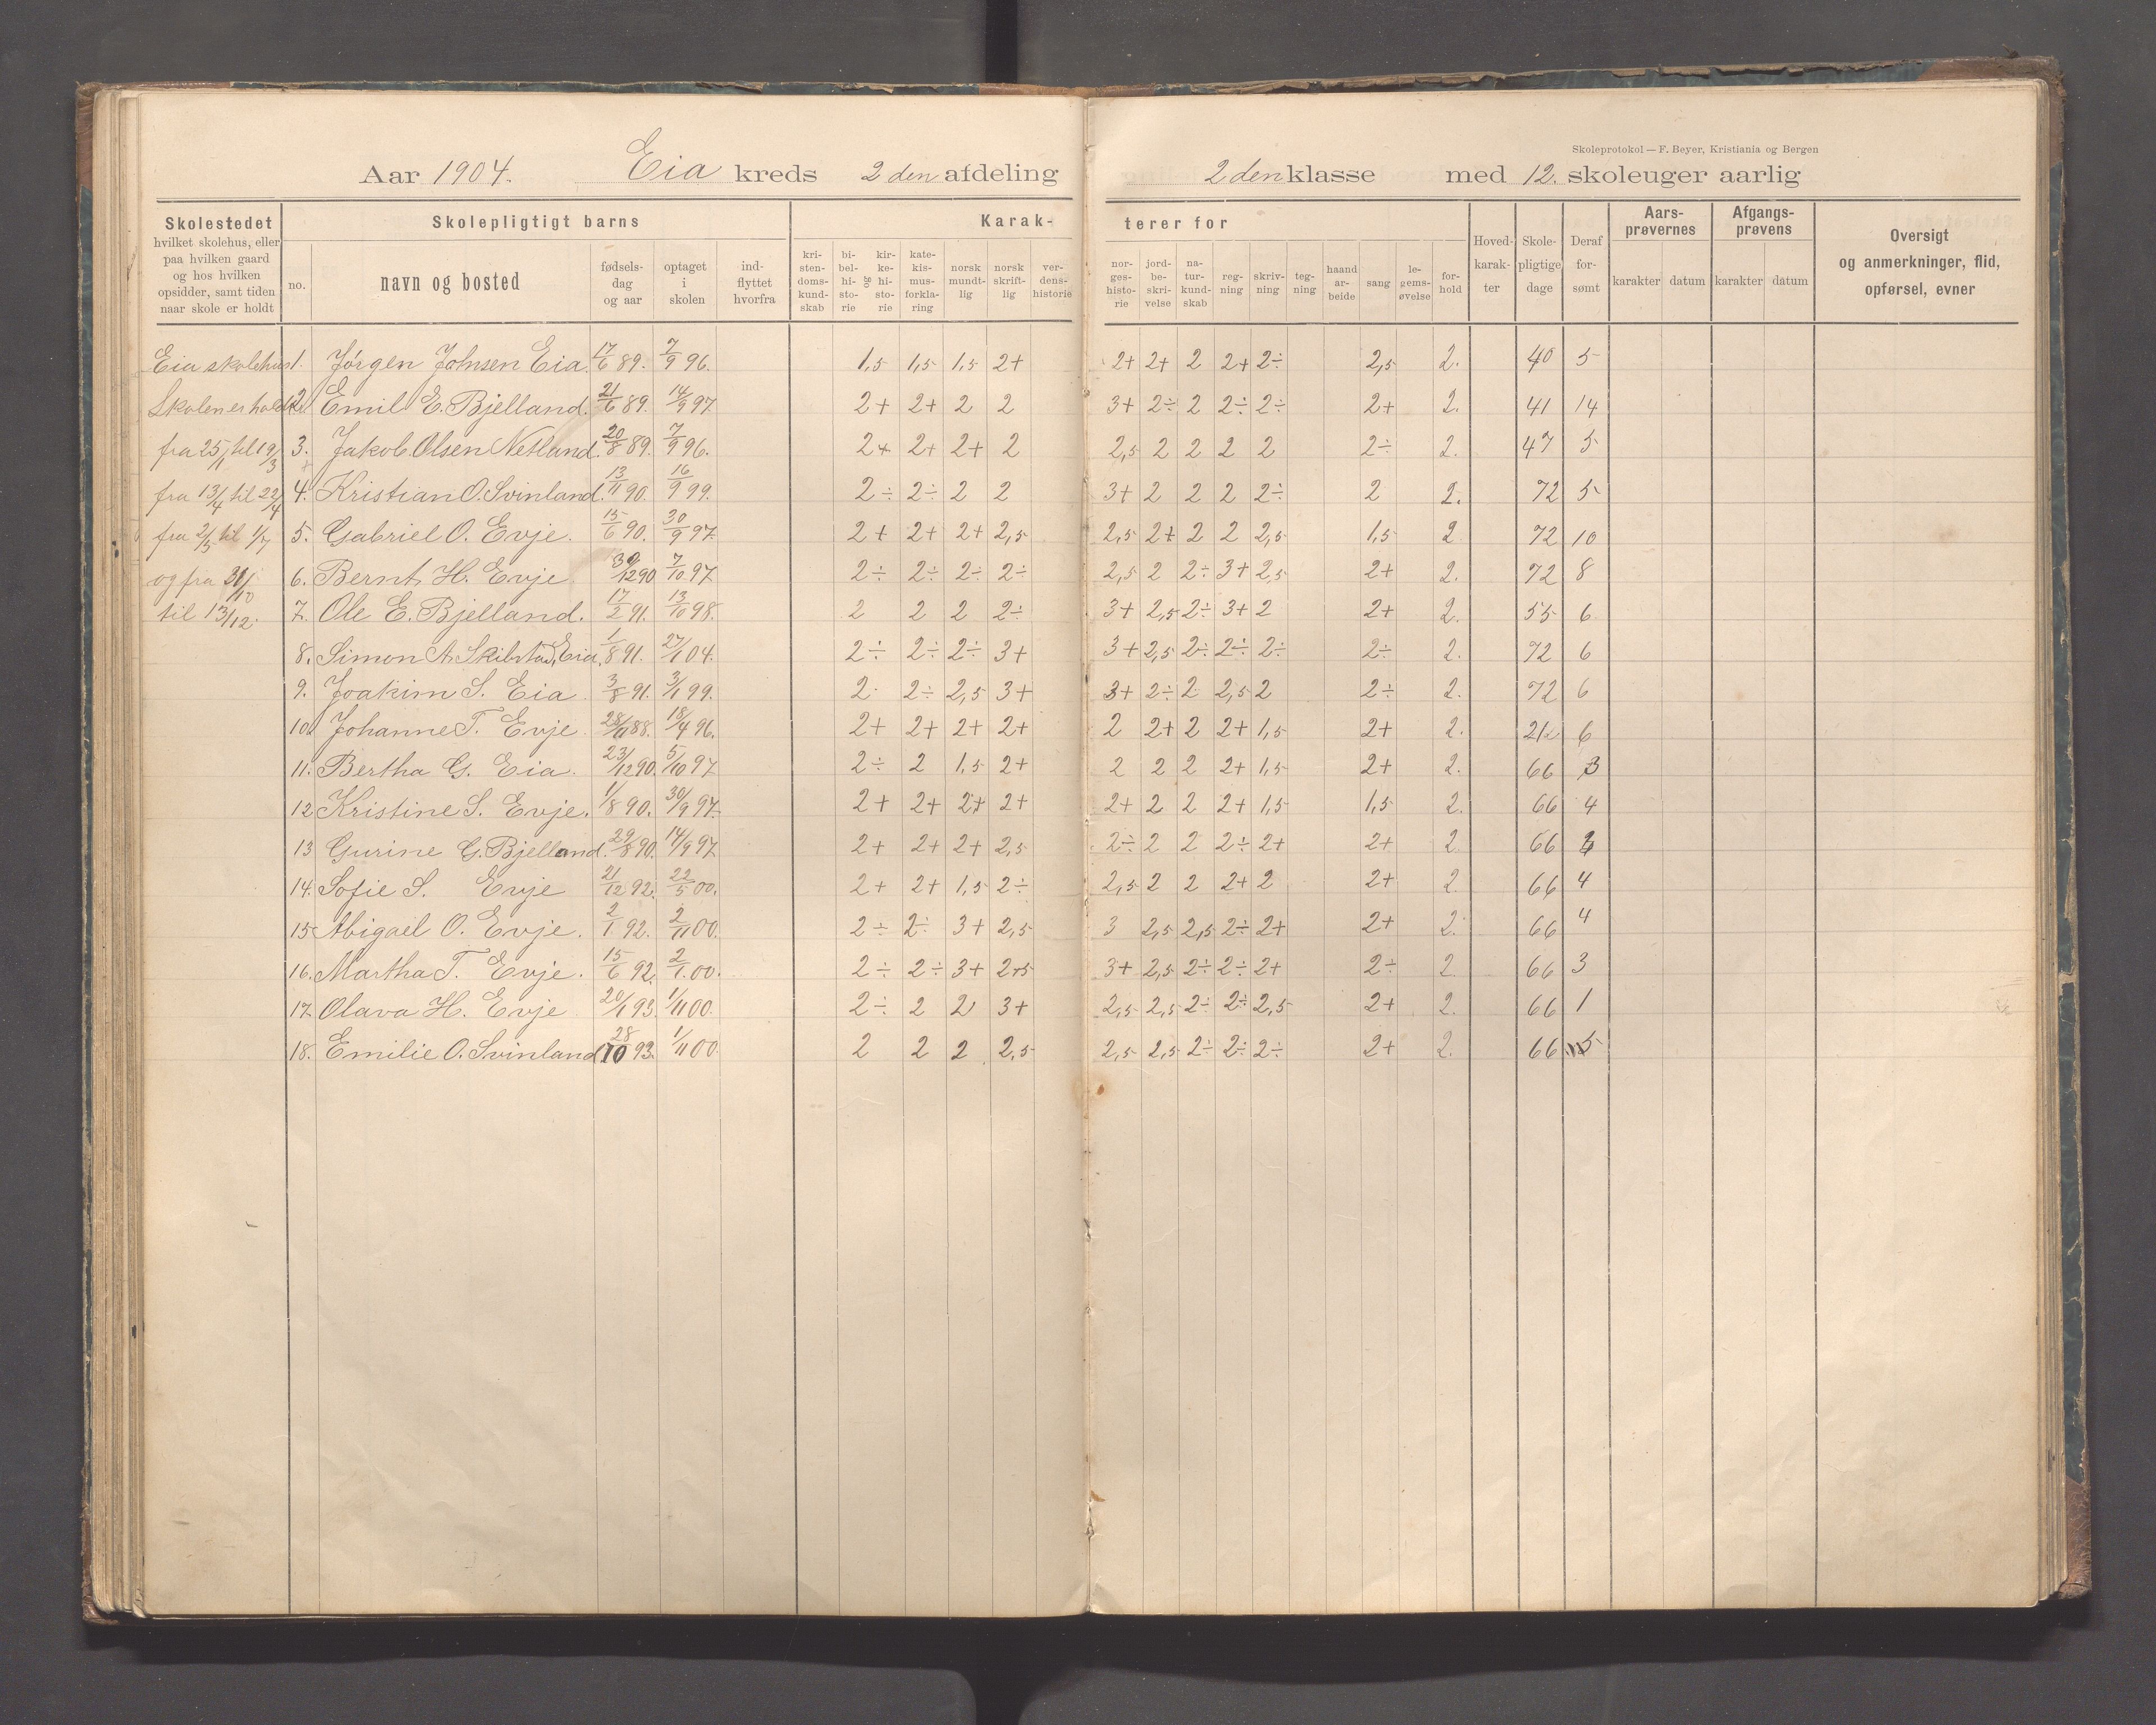 Skoleprotokol — F. Beyer, Kristiania og Bergen
Aar 1904. Eia kreds 2den afdeling 2den klasse med 12. skoleuger aarlig
Skolestedet
hvilket skolehus, eller
paa hvilken gaard
og hos hvilken
opsidder, samt tiden
naar skole er holdt
Skolepligtigt barns
no.
navn og bosted
fødsels-
dag
og aar
optaget
i
skolen
ind-
flyttet
hvorfra
Karak-
kri-
sten-
doms-
kund-
skab
bi-
bel-
hi-
sto-
rie
og
kir-
ke-
hi-
sto-
rie
kate-
kis-
mus-
forkla-
ring
norsk
mundt-
lig
norsk
skrift-
lig
ver-
dens-
historie
terer for
nor-
ges-
histo-
rie
jord-
be-
skri-
velse
na-
tur-
kund-
skab
reg-
ning
skriv-
ning
teg-
ning
haand
ar-
beide
sang
le-
gems-
øvelse
for-
hold
Hoved-
karak-
ter
Skole-
pligtige
dage
Deraf
for-
sømt
Aars-
prøvernes
karakter datum
Afgangs-
prøvens
karakter datum
Oversigt
og anmerkninger, flid,
opførsel, evner
Eia skolehus 1. Jørgen Johnsen Eia 17/6 89. 7/9 96. 1,5 1,5 1,5 2+ 2+ 2+ 2 2+ 2÷ 2,5 2. 40 5
Skolen er holdt 2. Emil E. Bjelland. 21/6 89. 14/9 97. 2+ 2+ 2 2 3+ 2÷ 2 2÷ 2÷ 2+ 2. 41 14
fra 25/1 til 19/3 3. Jakob Olsen Netland. 20/8 89. 7/9 96. 2+ 2+ 2+ 2 2,5 2 2 2 2 2÷ 2. 47 5
fra 13/4 til 22/4 4. Kristian O. Svinland. 13/11 90. 16/9 99. 2÷ 2÷ 2 2 3+ 2 2 2 2÷ 2 2. 72 5
fra 2/5 til 1/7 5. Gabriel O. Evje. 15/6 90. 30/9 97. 2+ 2+ 2+ 2,5 2,5 2+ 2 2 2,5 1,5 2 72 10
og fra 31/10 6. Bernt H. Evje 30/12 90 7/10 97. 2÷ 2÷ 2÷ 2÷ 2,5 2 2÷ 3+ 2,5 2+ 2. 72 8
til 13/12. 7. Ole E. Bjelland. 17/2 91. 13/10 98. 2 2 2 2÷ 3+ 2,5 2÷ 3+ 2 2+ 2. 55 6
8. Simon A. Skibstad, Eia. 1/8 91. 27/1 04. 2÷ 2÷ 2÷ 3+ 3+ 2,5 2÷ 2÷ 2÷ 2÷ 2. 72 6
9. Joakim S. Eia 3/8 91. 3/1 99. 2 2÷ 2,5 3+ 3+ 2÷ 2 2,5 2 2÷ 2. 72 6
10. Johanne T. Evje 28/11 88. 18/4 96. 2+ 2+ 2+ 2+ 2 2+ 2 2+ 1,5 2+ 2. 6
11. Bertha G. Eia. 23/12 90. 5/10 97 2÷ 2 1,5 2+ 2 2 2 2+ 1,5 2+ 2. 66 3
12 Kristine S. Evje. 1/8 90. 30/9 97. 2+ 2+ 2+ 2+ 2+ 2 2 2+ 1,5 1,5 2. 66 4
13 Gurine G. Bjelland. 29/8 90. 14/9 97. 2+ 2+ 2+ 2,5 2÷ 2 2 2÷ 2+ 2+ 2 66
14. Sofie S. Evje 21/12 92. 22/5 00. 2+ 2+ 1,5 2÷ 2,5 2 2 2+ 2 2+ 2 66 4
15 Abigael O. Evje. 2/1 92. 2/11 00. 2÷ 2÷ 3+ 2,5 3 2,5 2,5 2÷ 2+ 2+ 2. 66 4
16. Martha T. Evje. 15/6 92. 2/1 00. 2÷ 2÷ 3+ 2,5 3+ 2,5 2÷ 2÷ 2+ 2÷ 2. 66 3
17. Olava H. Evje 20/1 93. 1/11 00. 2÷ 2 2 3+ 2,5 2,5 2÷ 2÷ 2,5 2+ 2. 66 1
18. Emilie O. Svinland 28/10 93. 1/11 00. 2 2 2 2,5 2,5 2,5 2÷ 2÷ 2÷ 2+ 2. 66 5